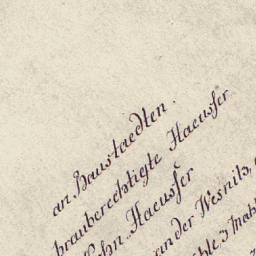 an Baustaedten.
brauberechtigte Haeuser
Haeuser
an der Wesnitz,
3 Mahl